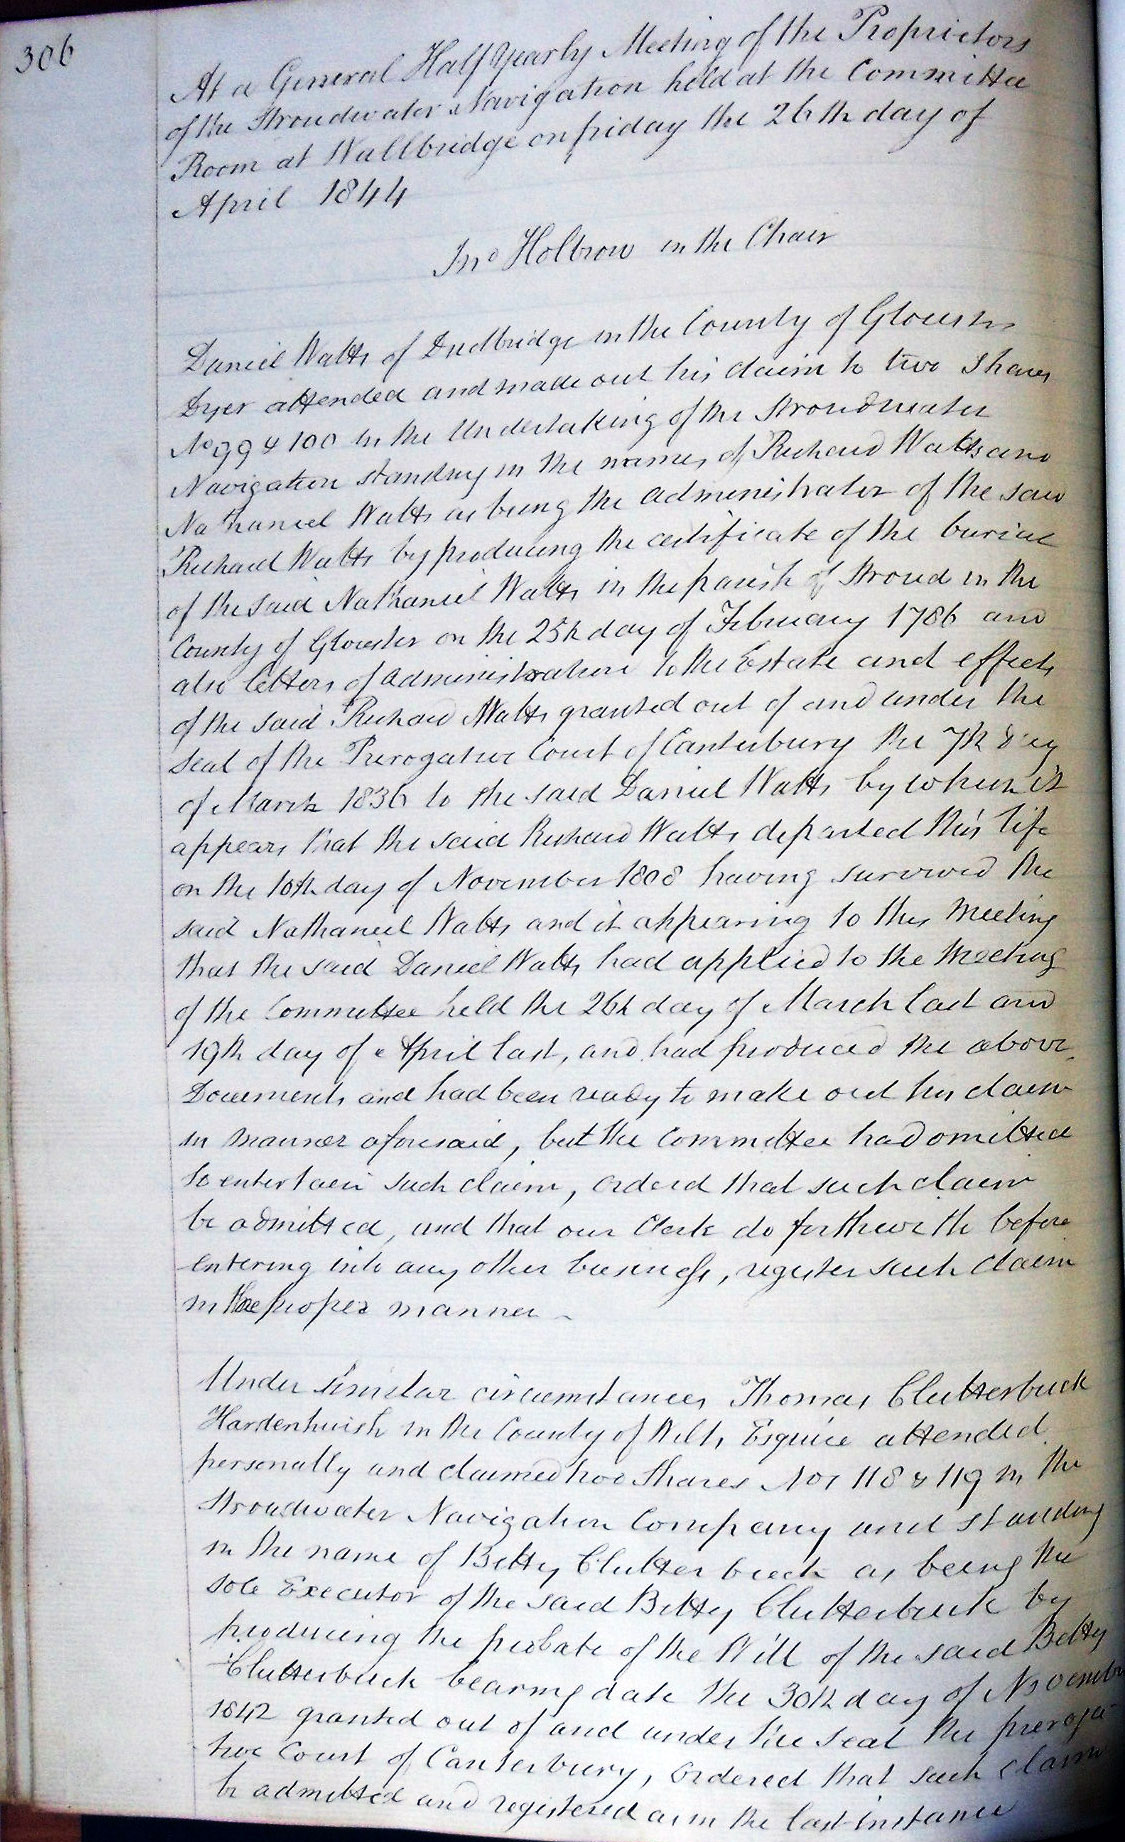 306
At a General Half Yearly Meeting of the Proprietors
of the Stroudwater Navigation held at the Committee
Room at Wallbridge on friday the 26th day of
April 1844
Jno Holbrow in the Chair
Daniel Watts of Dudbridge in the County of Gloucester
Dyer attended and made out his claim to two Shares
No 99 & 100 in the Undertaking of the Stroudwater
Navigation standing in the names of Richard Watts and
Nathaniel Watts as being the administrator of the said
Richard Watts by producing the certificate of the burial
of the said Nathaniel Watts in the parish of Stroud in the
County of Gloucester on the 25th day of February 1786 and
also letters of administration to the Estate and effects
of the said Richard Watts granted out of and under the
seal of the Prerogative Court of Canterbury the 7th day
of March 1836 to the said Daniel Watts by whom it
appears that the said Richard Watts departed this life
on the 10th day of November 1808 having survived the
said Nathaniel Watts and it appearing to this Meeting
that the said Daniel Watts had applied to the Meeting
of the Committee held the 26th day of March last and
19th day of April last, and had produced the above
Documents and had been ready to make out his claim
in manner aforesaid, but the Committee had omitted
to entertain such claim, orderd that such claim
be admitted, and that our Clerk do forthwith before
entering into any other business, register such claim
in the proper manner
Under similar circumstances Thomas Clutterbuck
Hardenhuish in the County of Wilts Esquire attended
personally and claimed two Shares Nos 118 & 119 in the
Stroudwater Navigation Company and standing
in the name of Betty Clutterbuck as being the
sole Executor of the said Betty Clutterbuck by
producing the probate of the Will of the said Betty
Clutterbuck bearing date the 30th day of November
1842 granted out of and under the seal the preroga
tive Court of Canterbury, ordered that such claim
be admitted and registered as in the last instance